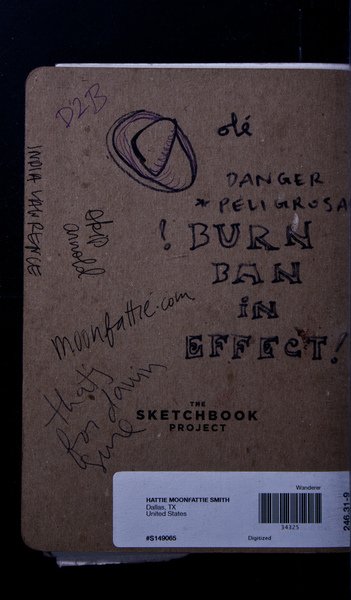 D2B
olé
DANGER
* PELIGROSA
! BURN
BAN
iN
EFFECT!
INDIA LAWRENCE
arnold
moonfattie.com
that's
for damn
sure
THE
SKETCHBOOK
PROJECT
Wanderer
HATTIE MOONFATTIE SMITH
Dallas, TX
United States
34325
#S149065
Digitized
246.31-9